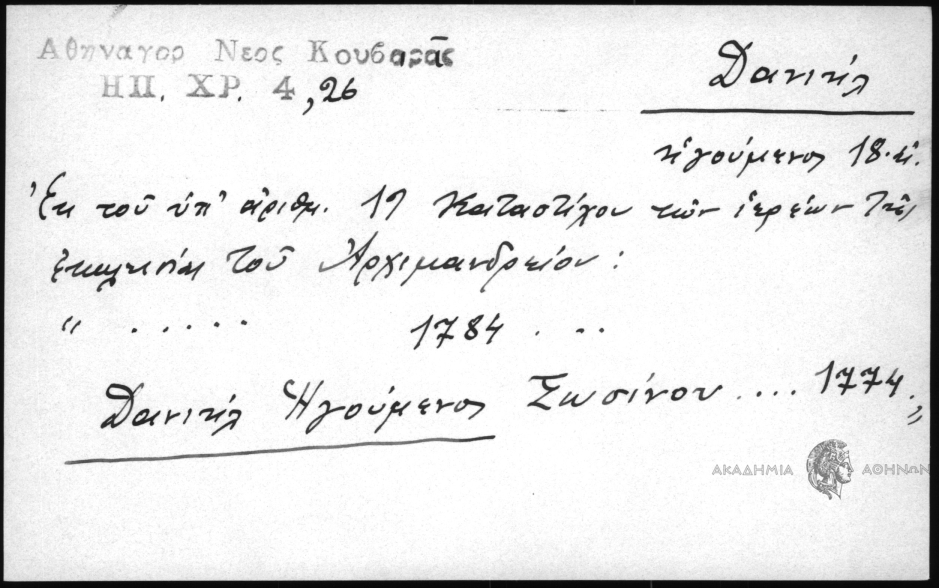 Αθηναγορ Νεος Κουβαρᾶς
ΗΠ. ΧΡ. 4, 26
Δανιήλ
ἡγούμενος 18. αἰ.
Ἐκ τοῦ ὑπ' ἀριθμ. 17 Καταστίχου τῶν ἱερέων τῆς
ἐκκλησίας τοῦ Ἀρχιμανδρείου:
" . . . . . 1784 . . .
Δανιήλ Ἡγούμενος Σωσίνου .... 1774."
ΑΚΑΔΗΜΙΑ ΑΘΗΝΩΝ